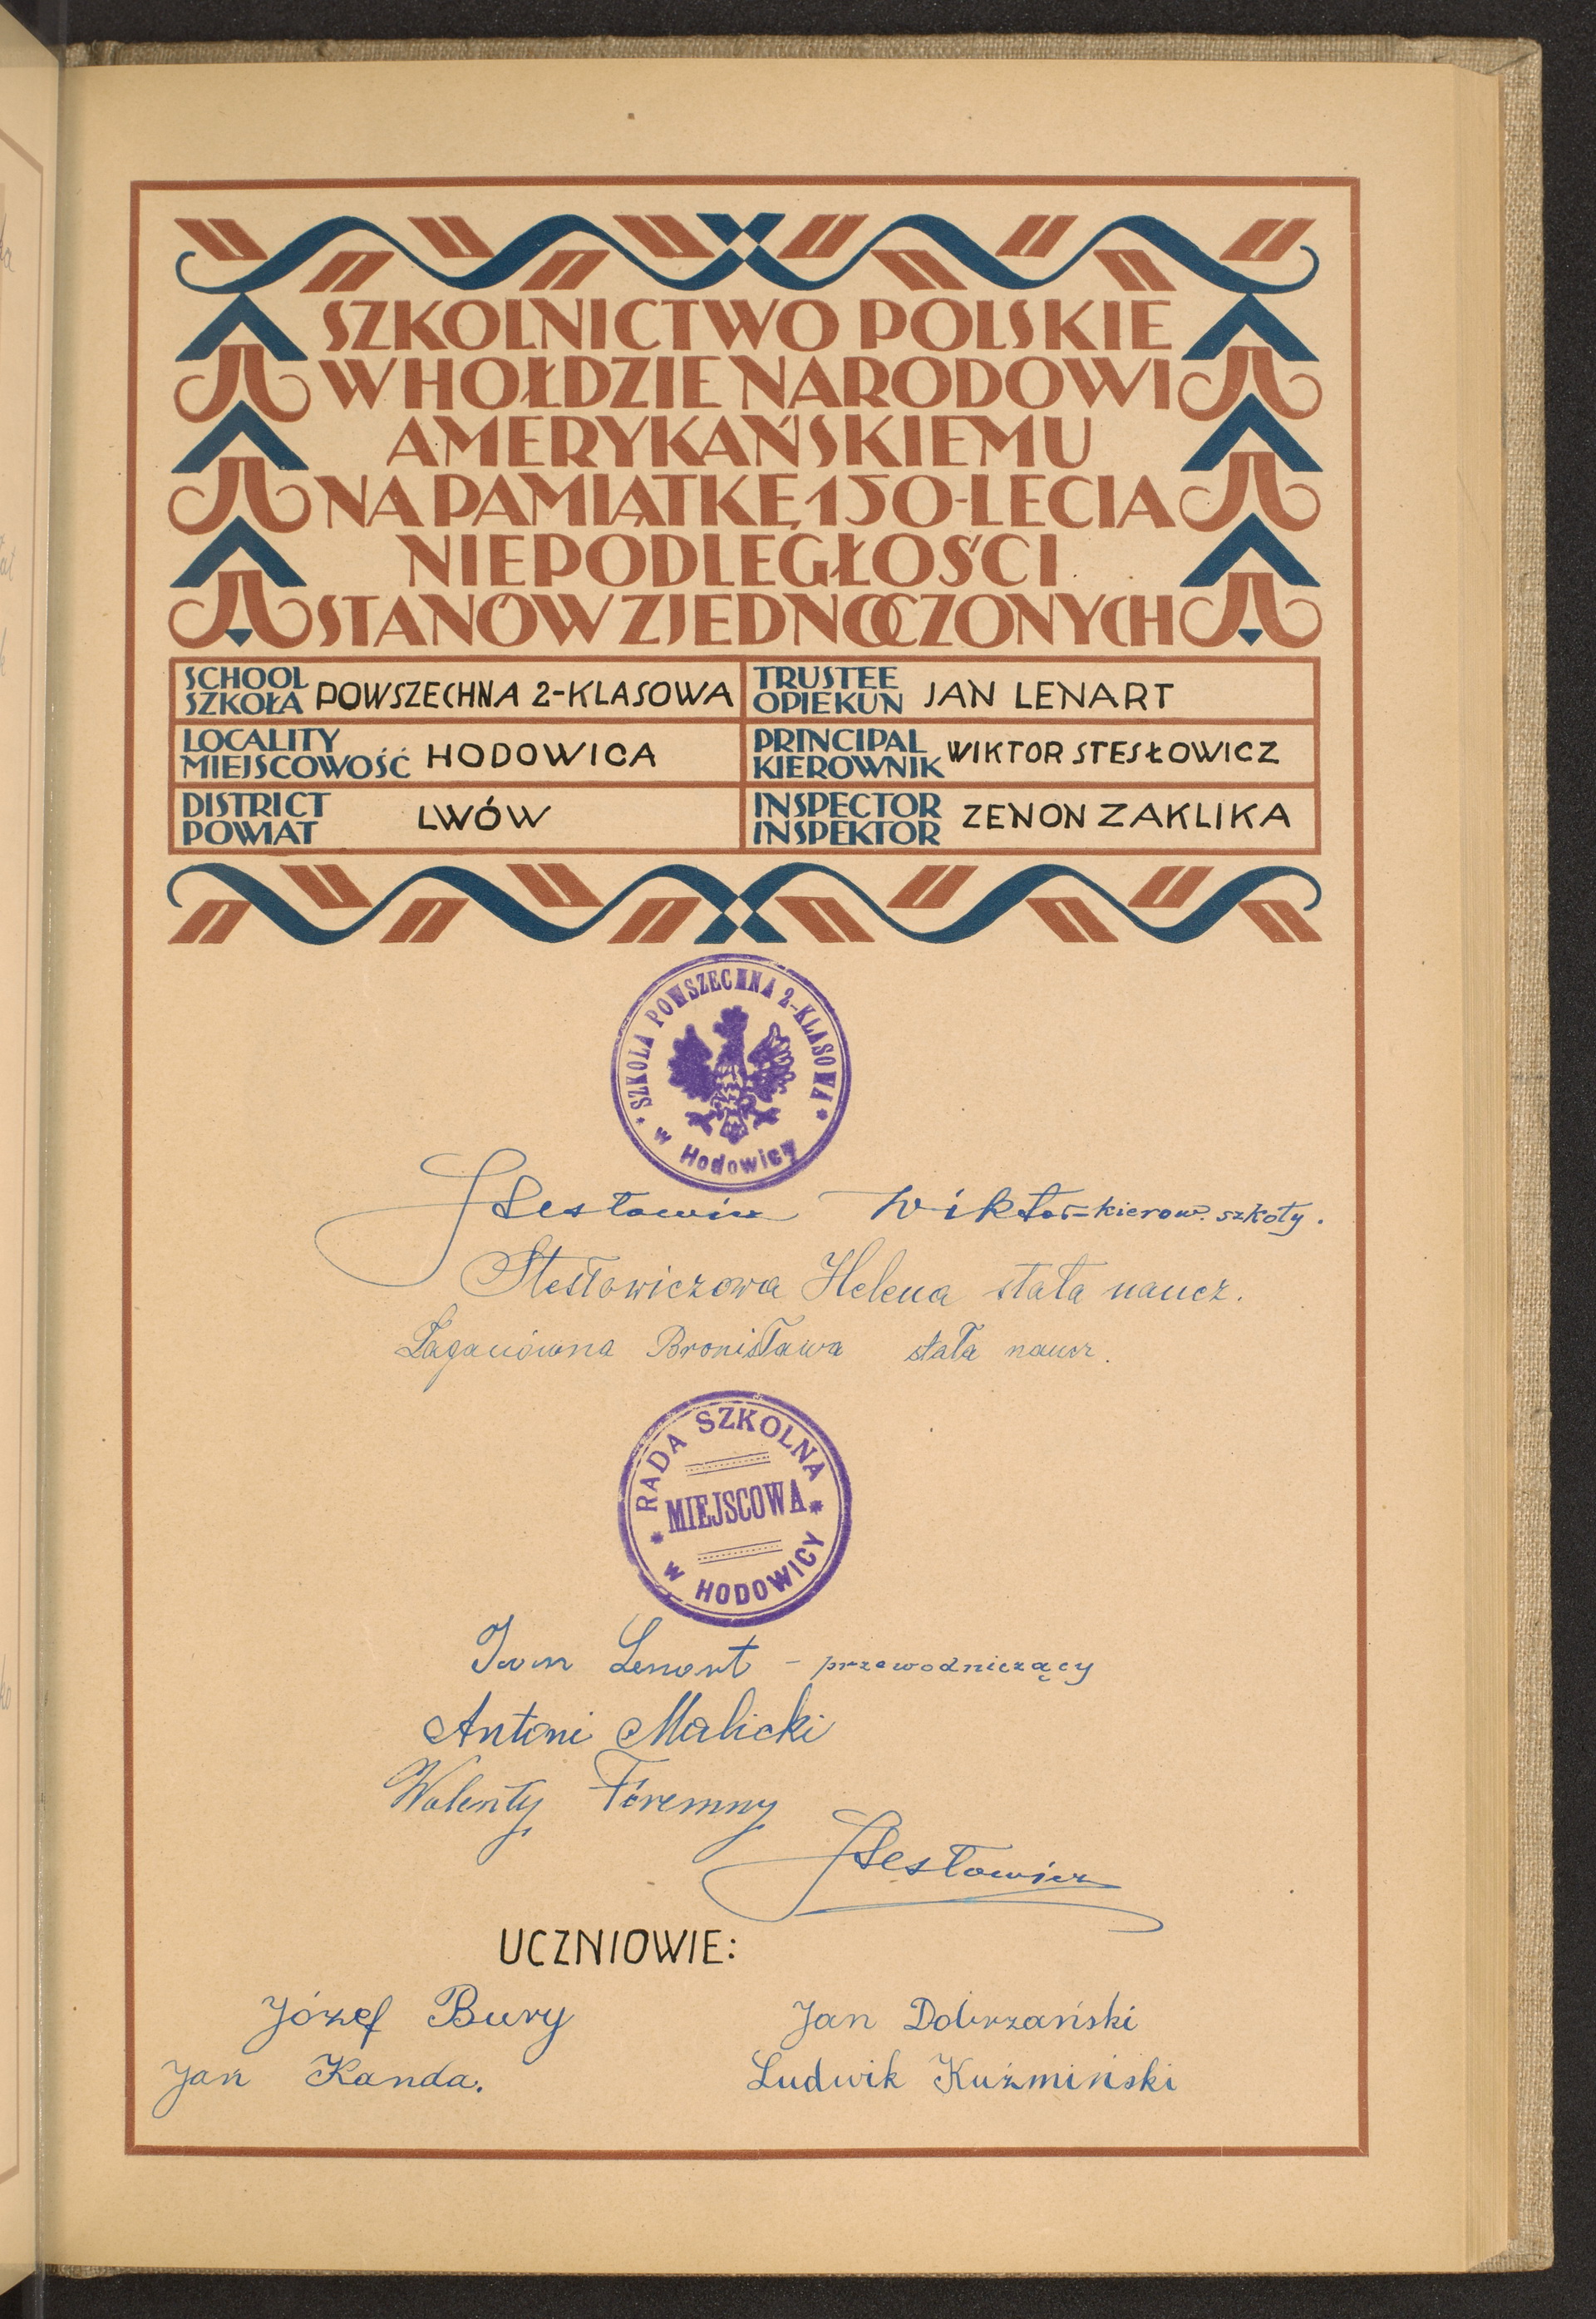 SZKOLNICTWO POLSKIE
W HOŁDZIE NARODOWI
AMERYKAŃSKIEMU
NA PAMIĄTKĘ 150-LECIA
NIEPODLEGŁOŚCI
STANÓW ZJEDNOCZONYCH
SCHOOL
SZKOŁA POWSZECHNA 2-KLASOWA
TRUSTEE
OPIEKUN JAN LENART
LOCALITY
MIEJSCOWOŚĆ HODOWICA
PRINCIPAL
KIEROWNIK WIKTOR STESŁOWICZ
DISTRICT
POWIAT LWÓW
INSPECTOR
INSPEKTOR ZENON ZAKLIKA
* SZKOŁA POWSZECHNA 2-KLASOWA *
w Hodowicy
Stesłowicz Wiktor - kierow. szkoły.
Stesłowiczowa Helena stała naucz.
Bronisława stała naucz.
* RADA SZKOLNA *
MIEJSCOWA
W HODOWICY
Jan Lenart - przewodniczący
Antoni Malicki
Walenty Foremny
Stesłowicz
UCZNIOWIE:
Józef Bury Jan Dobrzański
Jan Kanda. Ludwik Kuźmiński